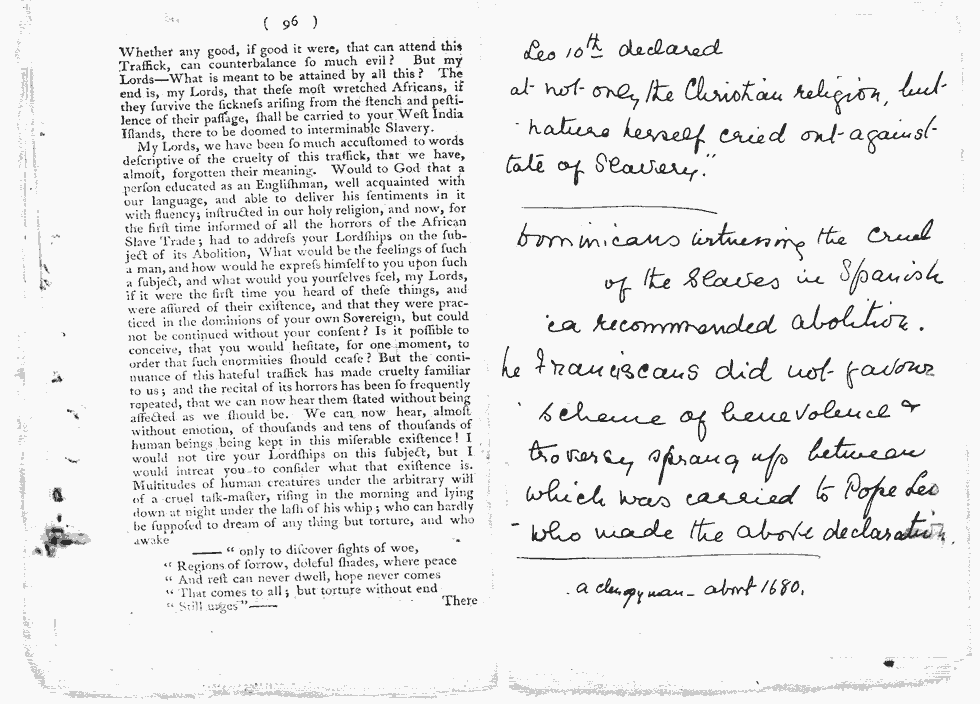 ( 96 )
Whether any good, if good it were, that can attend this
Traffick, can counterbalance ſo much evil? But my
Lords—What is meant to be attained by all this? The
end is, my Lords, that theſe moſt wretched Africans, if
they ſurvive the ſickneſs ariſing from the ſtench and peſti-
lence of their paſſage, ſhall be carried to your Weſt India
Iſlands, there to be doomed to interminable Slavery.
My Lords, we have been ſo much accuſtomed to words
deſcriptive of the cruelty of this traffick, that we have,
almoſt, forgotten their meaning. Would to God that a
perſon educated as an Engliſhman, well acquainted with
our language, and able to deliver his ſentiments in it
with fluency; inſtructed in our holy religion, and now, for
the firſt time informed of all the horrors of the African
Slave Trade; had to addreſs your Lordſhips on the ſub-
ject of its Abolition, What would be the feelings of ſuch
a man, and how would he expreſs himſelf to you upon ſuch
a ſubject, and what would you yourſelves feel, my Lords,
if it were the firſt time you heard of theſe things, and
were aſſured of their exiſtence, and that they were prac-
ticed in the dominions of your own Sovereign, but could
not be continued without your conſent? Is it poſſible to
conceive, that you would heſitate, for one moment, to
order that ſuch enormities ſhould ceaſe? But the conti-
nuance of this hateful traffick has made cruelty familiar
to us; and the recital of its horrors has been ſo frequently
repeated, that we can now hear them ſtated without being
affected as we ſhould be. We can now hear, almoſt
without emotion, of thouſands and tens of thouſands of
human beings being kept in this miſerable exiſtence! I
would not tire your Lordſhips on this ſubject, but I
would intreat you to conſider what that exiſtence is.
Multitudes of human creatures under the arbitrary will
of a cruel taſk-maſter, riſing in the morning and lying
down at night under the laſh of his whip; who can hardly
be ſuppoſed to dream of any thing but torture, and who
awake
—— “ only to diſcover ſights of woe,
“ Regions of ſorrow, doleful ſhades, where peace
“ And reſt can never dwell, hope never comes
“ That comes to all; but torture without end
“ Still urges”——
There
Leo 10th declared
at not only the Christian religion, but
nature herself cried out against
tate of Slavery."
Dominicans witnessing the cruel
of the Slaves in Spanish
ica recommended abolition.
he Franciscans did not favour
scheme of benevolence &
troversy sprang up between
which was carried to Pope Leo
who made the above declaration.
a clergyman - about 1680.